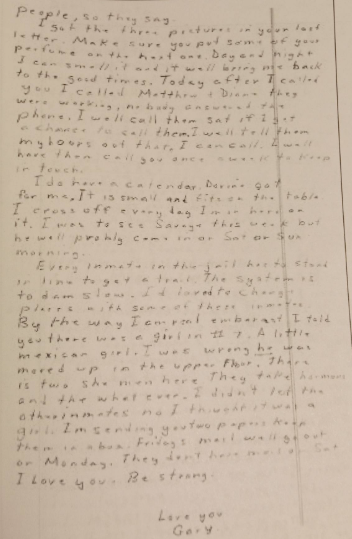 people, so they say.
I got the three pictures in your last
letter. Make sure you put some of your
perfume on the next one. Day and night
I can smell it and it well bring me back
to the good times. Today after I called
you I called Matthew & Diane they
were working, nobody answered the
phone. I well call them sat if I get
a chance to call them. I well tell them
my hours out that, I can call. I well
have them call you once a week to keep
in touch.
I do have a calendar. Dorine got
for me. It is small and fits on the table
I cross off every day I'm in here on
it. I was to see Savage this week but
he well probly come in on Sat or Sun
morning.
Every inmate in the jail has to stand
in line to get a trail. The system is
to dam slow. I'd loved to change
places with some of these inmates.
By the way I am real embarast I told
you there was a girl in # 7. A little
mexican girl. I was wrong he was
moved up in the upper floor. There
is two she men here They take hormons
and the what ever. I didn't let the
other inmates no I thought it was a
girl. Im sending you two papers keep
them in a box. Fridays mail well go out
on Monday. They don't have mail on Sat
I love you. Be strong.
Love you
Gary